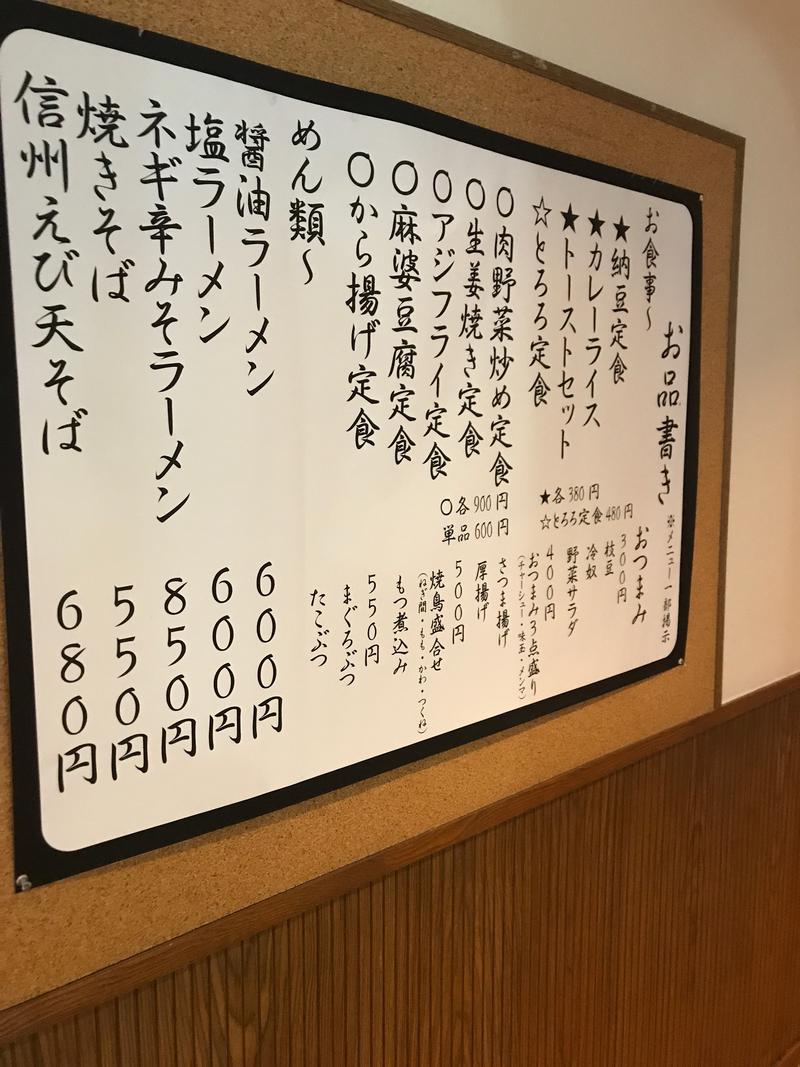 お品書き
※メニュー一部掲示
お食事〜
★納豆定食
★カレーライス
★トーストセット
☆とろろ定食
★各380円
☆とろろ定食480円
○肉野菜炒め定食
○生姜焼き定食
○アジフライ定食
○麻婆豆腐定食
○から揚げ定食
○各900円
単品600円
おつまみ
300円
枝豆
冷奴
野菜サラダ
400円
おつまみ3点盛り
(チャーシュー・味玉・メンマ)
さつま揚げ
厚揚げ
500円
焼鳥盛合せ
(ねぎ間・もも・かわ・つくね)
もつ煮込み
550円
まぐろぶつ
たこぶつ
めん類〜
醤油ラーメン 600円
塩ラーメン 600円
ネギ辛みそラーメン 850円
焼きそば 550円
信州えび天そば 680円